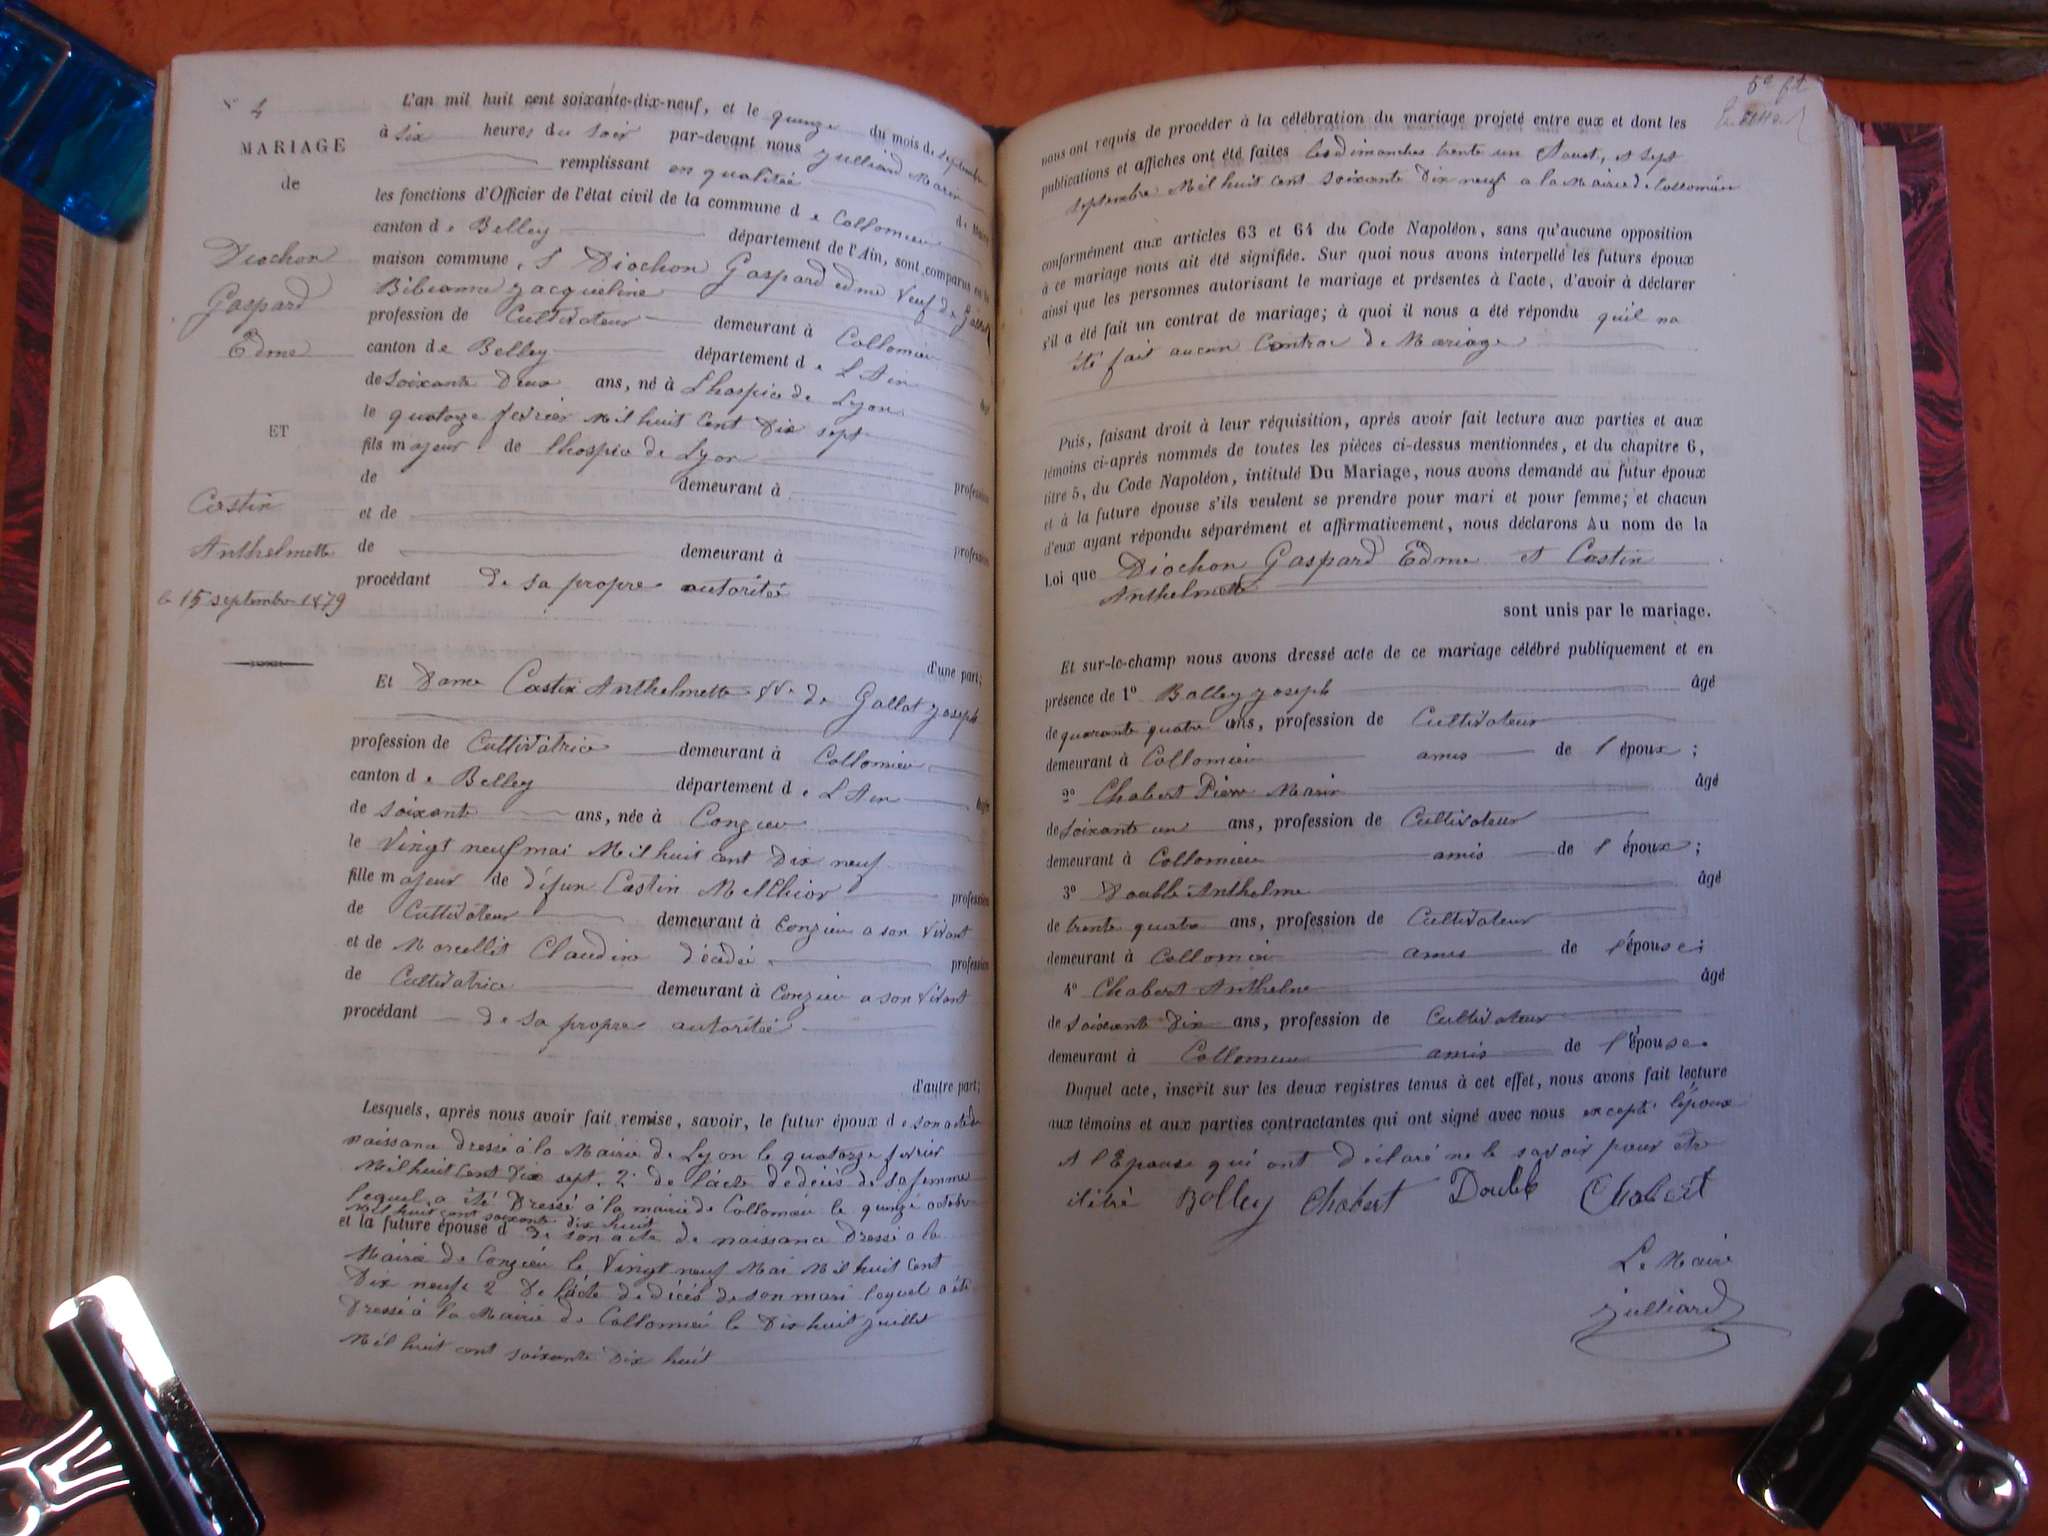 N° 4
MARIAGE
de
Diochon
Gaspard
Edme
ET
Castin
Anthelmette
le 15 septembre 1879
L'an mil huit cent soixante-dix-neuf, et le quinze du mois de septembre
à six heures du soir par-devant nous Julliard Marin
remplissant en qualitée de Maire
les fonctions d'Officier de l'état civil de la commune de Collomieu
canton de Belley département de l'Ain, sont comparus en la
maison commune, S Diochon Gaspard edme Veuf de Gallot
Bibianne jacqueline
profession de Cultivateur demeurant à Collomieu
canton de Belley département de L Ain âgé
de Soixante Deux ans, né à L'hospice de Lyon
le quatorze fevrier Mil huit Cent Dix sept
fils majeur de lhospice de Lyon
de demeurant à profession
et de
de demeurant à profession
procédant de sa propre autoritée
d'une part;
Et Dame Castin Anthelmette Vve de Gallot joseph
profession de Cultivatrice demeurant à Collomieu
canton de Belley département de L Ain âgée
de soixante ans, née à Conzieu
le Vingt neuf mai Mil huit cent Dix neuf
fille majeur de défun Castin Melchior profession
de Cultivateur demeurant à Conzieu a son Vivant
et de Marcellit Claudine décedée profession
de Cultivatrice demeurant à Conzieu a son Vivant
procédant de sa propre autoritée
d'autre part;
Lesquels, après nous avoir fait remise, savoir, le futur époux de son acte de
naissance dressé à la Mairie de Lyon le quatorze fevrier
Mil huit Cent Dix sept. 2° de l'acte de décès de sa femme
lequel a été Dressé à la mairie de Collomieu le quinze octobre
Mil huit cent soixante dix huit
et la future épouse d de son acte de naissance Dressé a la
Mairie de Conzieu le Vingt neuf Mai Mil huit Cent
Dix neuf 2 De l'acte de décès de son mari lequel a été
Dressé à la Mairie de Collomieu le Dix huit juillet
Mil huit cent soixante Dix huit
5e ft
nous ont requis de procéder à la célébration du mariage projeté entre eux et dont les
publications et affiches ont été faites les dimanches trente un Aoust, et sept
septembre Mil huit cent soixante Dix neuf a la Mairie de Collomieu
conformément aux articles 63 et 64 du Code Napoléon, sans qu'aucune opposition
à ce mariage nous ait été signifiée. Sur quoi nous avons interpellé les futurs époux
ainsi que les personnes autorisant le mariage et présentes à l'acte, d'avoir à déclarer
s'il a été fait un contrat de mariage; à quoi il nous a été répondu quil na
été fait aucun Contrac de Mariage
Puis, faisant droit à leur réquisition, après avoir fait lecture aux parties et aux
témoins ci-après nommés de toutes les pièces ci-dessus mentionnées, et du chapitre 6,
titre 5, du Code Napoléon, intitulé Du Mariage, nous avons demandé au futur époux
et à la future épouse s'ils veulent se prendre pour mari et pour femme; et chacun
d'eux ayant répondu séparément et affirmativement, nous déclarons Au nom de la
Loi que Diochon Gaspard Edme et Castin
Anthelmette
sont unis par le mariage.
Et sur-le-champ nous avons dressé acte de ce mariage célébré publiquement et en
présence de 1° Balley joseph âgé
de quarante quatre ans, profession de Cultivateur
demeurant à Collomieu amis de l'époux;
2° Chabert Pierre Marin âgé
de soixante un ans, profession de Cultivateur
demeurant à Collomieu amis de l'époux;
3° Double Anthelme âgé
de trente quatre ans, profession de Cultivateur
demeurant à Collomieu amis de l'épouse;
4° Chabert Anthelme âgé
de soixante Dix ans, profession de Cultivateur
demeurant à Collomieu amis de l'Épouse.
Duquel acte, inscrit sur les deux registres tenus à cet effet, nous avons fait lecture
aux témoins et aux parties contractantes qui ont signé avec nous excepté l'époux
et l'Epouse qui ont déclaré ne le savoir pour être
ilitré Bolley Chabert Double Chabert
Le Maire
Julliard